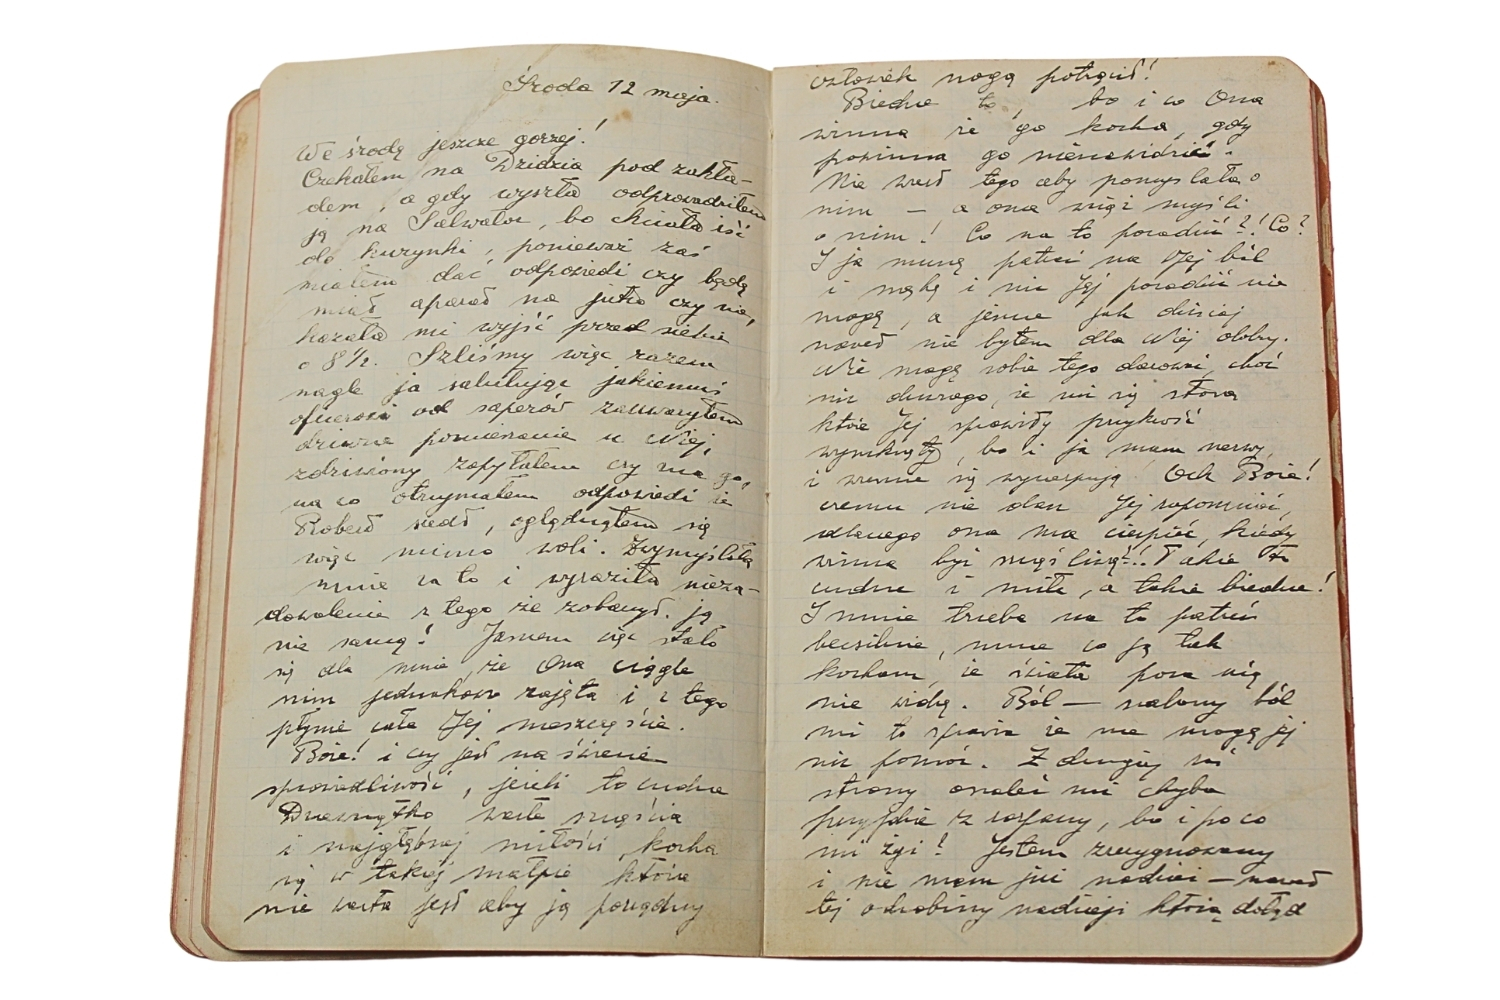 Środa 12 maja.
We środę jeszcze gorzej!
Czekałem na Dzidzią pod zakła-
dem, a gdy wyszła odprowadziłem
ją na Salwator, bo chciała iść
do kuzynki, ponieważ zaś
miałem dać odpowiedź czy będę
miał aparat na jutro czy nie,
kazała mi wyjść przed siebie
o 8½. Szliśmy więc razem
nagle ja salutując jakiemuś
oficerowi od saperów zauważyłem
dziwne pomieszanie u Niej,
zdziwiony zapytałem czy zna go,
na co otrzymałem odpowiedź że
Robert szedł, oglądnąłem się
więc mimo woli. Zwymyślała
mnie za to i wyraziła nieza-
dowolenie z tego że zobaczył ją
nie samą! Jasnem więc stało
się dla mnie, że Ona ciągle
nim jednakowo zajęta i z tego
płynie całe Jej nieszczęście.
Boże! i czy jest na świecie
sprawiedliwość, jeżeli to cudne
Dziewczątko warte szczęścia
i najgłębszej miłości, kocha
się w takiej małpie która
nie warta jest aby ją porządny
człowiek nogą potrącił!
Biedne to, bo i co Ona
winna że go kocha, gdy
powinna go nienawidzić.
Nie wart tego aby pomyślała o
nim — a ona wciąż myśli
o nim! Co na to poradzić?! Co?
I ja muszę patrzeć na Jej ból
i mękę i nic Jej poradzić nie
mogę, a jeszcze jak dzisiaj
nawet nie byłem dla Niej dobry.
Nie mogę sobie tego darować, choć
nic dziwnego, że mi się słowa
które Jej sprawiły przykrość
wymknęły, bo i ja mam nerwy,
i wreszcie się wyczerpują! Och Boże!
czemu nie dasz Jej zapomnieć,
dlaczego ona ma cierpieć, kiedy
winna być szczęśliwą!!.. Takie to
cudne i miłe, a takie biedne!
I mnie trzeba na to patrzeć
bezsilnie, mnie co ją tak
kocham, że świata poza nią
nie widzę. Ból — szalony ból
mi to sprawia że nie mogę jej
nic pomóc. Z drugiej zaś
strony oszaleć mi chyba
przyjdzie z rozpaczy, bo i po co
mi żyć? Jestem zrezygnowany
i nie mam już nadziei — nawet
tej odrobiny nadziei którą dotąd